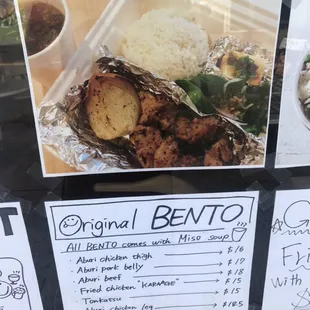 Original BENTO
All BENTO comes with Miso soup
・Aburi chicken thigh $16
・Aburi pork belly $17
・Aburi beef $18
・Fried chicken "KARAAGE" $15
・Tonkatsu $15
・Aburi chicken leg $18.5
Fri
with
$
T